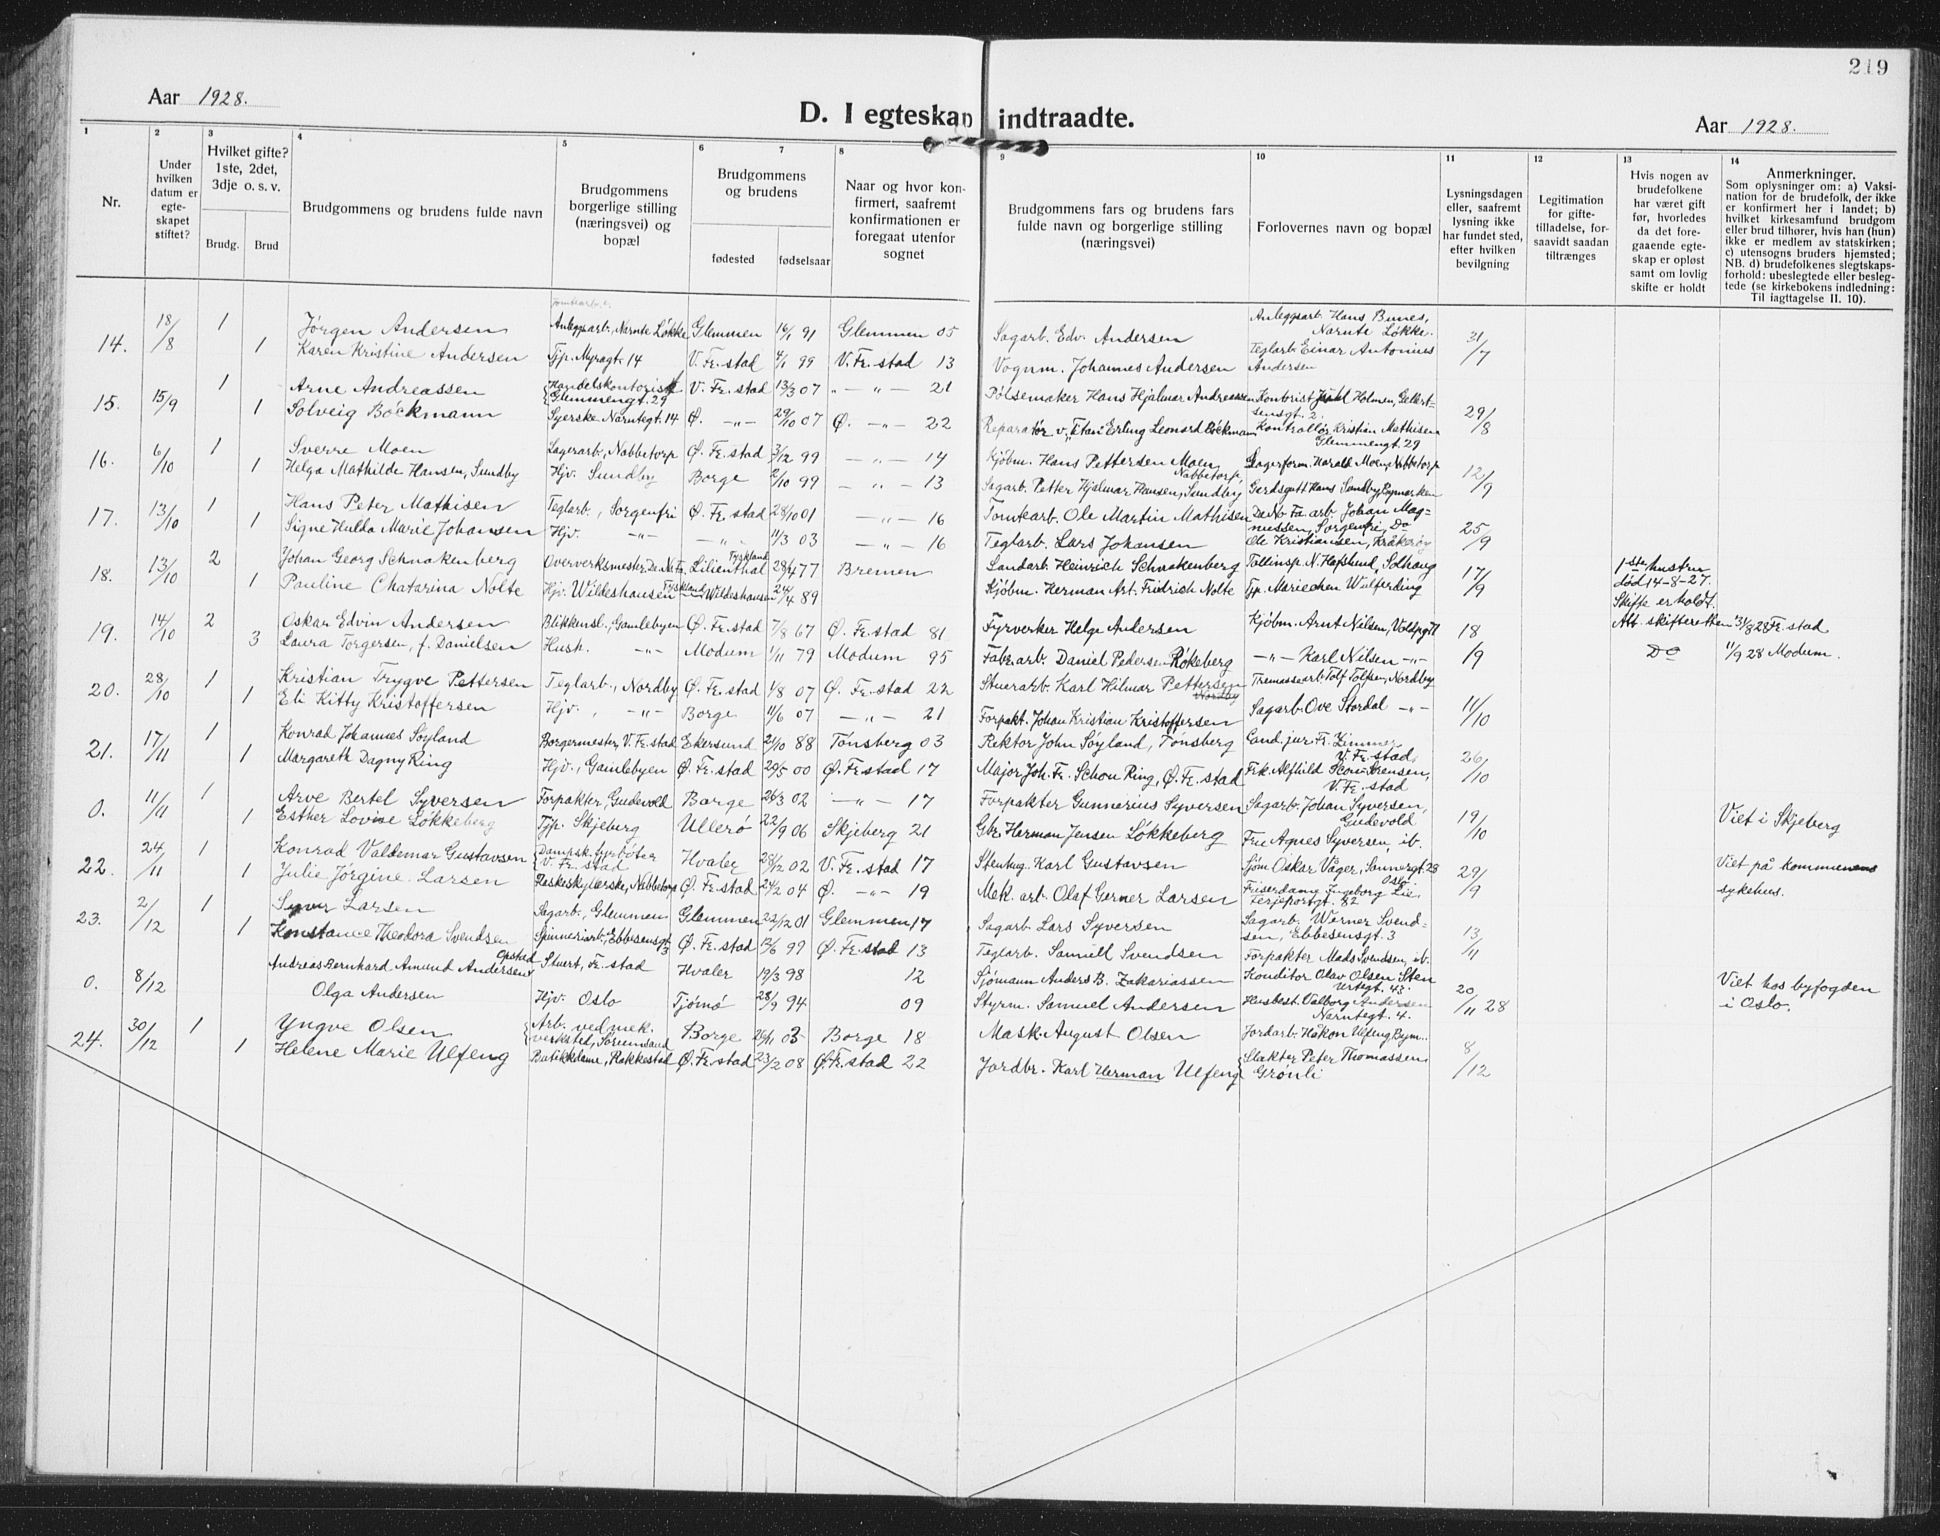 219
Aar 1928.
D. I egteskap indtraadte.
Aar 1928.
1
Nr.
2
Under hvilken datum er egte-skapet stiftet?
3
Hvilket gifte? 1ste, 2det, 3dje o. s. v.
Brudg. Brud
4
Brudgommens og brudens fulde navn
5
Brudgommens borgerlige stilling (næringsvei) og bopæl
6 7
Brudgommens og brudens
fødested fødselsaar
8
Naar og hvor konfirmert, saafremt konfirmationen er foregaat utenfor sognet
9
Brudgommens fars og brudens fars fulde navn og borgerlige stilling (næringsvei)
10
Forlovernes navn og bopæl
11
Lysningsdagen eller, saafremt lysning ikke har fundet sted, efter hvilken bevilgning
12
Legitimation for gifte-tilladelse, for-saavidt saadan tiltrænges
13
Hvis nogen av brudefolkene har været gift før, hvorledes da det fore-gaaende egte-skap er opløst samt om lovlig skifte er holdt
14
Anmerkninger.
Som oplysninger om: a) Vaksi-nation for de brudefolk, der ikke er konfirmert her i landet; b) hvilket kirkesamfund brudgom eller brud tilhører, hvis han (hun) ikke er medlem av statskirken; c) utensogns bruders hjemsted; NB. d) brudefolkenes slegtskaps-forhold: ubeslegtede eller besleg-tede (se kirkebokens indledning: Til iagttagelse II. 10).
14. 18/8 1 Jørgen Andersen Anlegsarb., Narnte Løkke Glemmen 16/1 91 Glemmen 05 Sagarb. Edv. Andersen Anlegsarb. Hans Bunes, Narnte Løkke. 31/7
1 Karen Kristine Andersen Tjp. Myragt. 14 V. Fr.stad 4/1 99 V. Fr.stad 13 Vognm. Johannes Andersen Teglarb. Einar Antonius Andersen
15. 15/9 1 Arne Andreassen Handelskontorist Glemmengt. 29 V. Fr.stad 13/3 07 - " - 21 Pølsemaker Hans Hjalmar Andreassen Kontorist Holmen, 29/8
1 Solveig Bøckmann Syerske Narntegt. 14 Ø. - " - 29/10 07 Ø. - " - 22 Reparatør v. Erling Leonard Bøckmann Kontrollør Kristian Mathisen Glemmengt. 29
16. 6/10 1 Sverre Moen Lagerarb., Nabbetorp Ø. Fr.stad 3/12 99 - " - 14 Kjøbm. Hans Pettersen Moen, Nabbetorp, Lagerform. Harald Moen, Nabbetorp 12/9
1 Helga Mathilde Hansen, Sundby Hjv. Sundby Borge 2/10 99 - " - 13 Sagarb. Petter Hjalmar Hansen, Sundby Hans Sundby
17. 13/10 1 Hans Peter Mathisen Teglarb., Sorgenfri Ø. Fr.stad 28/10 01 - " - 16 Tomtearb. Ole Martin Mathisen De No Fa. arb. Johan Magnussen, Sorgenfri, Do 25/9
1 Signe Hulda Marie Johansen Hjv. - " - - " - 11/3 03 - " - 16 Teglarb. Lars Johansen Ole Kristiansen, Kråkerøy
18. 13/10 2 Johan Georg Schnakenberg Oververksmester De No Fa Lilienthal Tyskland 28/4 77 Bremen Landarb. Heinrich Schnakenberg Tollinsp. N. Hafslund, Solhaug 17/9 1ste hustru død 14-8-27. Skifte er holdt.
1 Pauline Chatarina Nolte Hjv. Wildeshausen Tyskland Wildeshausen 24/4 89 Kjøbm. Herman Art. Fridrich Nolte Fp. Mariechen Wulferding
19. 14/10 2 Oskar Edvin Andersen Blikkensl., Gamlebyen Ø. Fr.stad 7/8 67 Ø. Fr.stad 81 Fyrverker Helge Andersen Kjøbm. Arnt Nilsen, Voldpgt 18/9 Att. skifteretten 31/8 28 Fr.stad
3 Laura Torgersen, f. Danielsen Hush. - " - Modum 1/11 79 Modum 95 Fabr.arb. Daniel Pedersen Røkeberg - " - Karl Nilsen - " - Do 11/9 28 Modum.
20. 28/10 1 Kristian Trygve Pettersen Teglarb., Nordby Ø. Fr.stad 1/8 07 Ø. Fr.stad 22 Stuerarb. Karl Hilmar Pettersen Nordby Tremassearb. Tolf Tolfsen, Nordby 11/10
1 Eli Kitty Kristoffersen Hjv. - " - Borge 11/6 07 - " - 21 Forpakt. Johan Kristian Kristoffersen Sagarb. Ove Stordal - " -
21. 17/11 1 Konrad Johannes Søyland Borgermester, V. Fr.stad Ekersund 21/10 88 Tønsberg 03 Rektor John Søyland, Tønsberg Cand. jur. Fr. Zimmer V. Fr.stad, 26/10
1 Margareth Dagny Ring Hjv., Gamlebyen Ø. Fr.stad 29/5 00 Ø. Fr.stad 17 Major Joh. Fr. Schou Ring, Ø. Fr.stad Frk. Alfhild Sørensen, V. Fr.stad
0. 11/11 1 Arve Bertel Syversen Forpakter, Gudevold Borge 26/3 02 - " - 17 Forpakter Gunnerius Syversen Sagarb. Johan Syversen, Gudevold 19/10 Viet i Skjeberg
1 Esther Lovise Løkkeberg Tjp. Skjeberg Ullerø 22/9 06 Skjeberg 21 Gbr. Herman Jensen Løkkeberg Fru Agnes Syversen, ib.
22. 24/11 1 Konrad Valdemar Gustavsen Dampsk. fyrbøter V. Fr.stad Hvaler 28/12 02 V. Fr.stad 17 Stenhug. Karl Gustavsen Sjøm. Oskar Våger, 29/9 Viet på kommunens sykehus.
1 Julie Jørgine Larsen Flaskeskylerske, Nabbetorp Ø. Fr.stad 24/2 04 Ø. - " - 19 Mek. arb. Olaf Gerner Larsen Ingeborg Lie, Ferjeportgt. 82
23. 2/12 1 Syver Larsen Sagarb., Glemmen Glemmen 22/12 01 Glemmen 17 Sagarb. Lars Syversen Sagarb. Werner Svendsen, Ebbesensgt. 3 13/11
1 Konstance Theodora Svendsen Spinneriarb., Ebbesensgt. 13 Ø. Fr.stad 13/6 99 Ø. Fr.stad 13 Teglarb. Samuel Svendsen Forpakter Mads Svendsen, ib.
0. 8/12 Andreas Bernhard Amund Andersen Opstad Stuert, Fr.stad Hvaler 19/3 98 12 Sjømann Anders B. Zakariassen Konditor Olav Olsen, Stenurtegt. 43. 20/11 28 Viet hos byfogden i Oslo.
Olga Andersen Hjv. Oslo Tjømø 28/9 94 09 Styrm. Samuel Andersen Husbest. Valborg Andersen Narntegt. 4.
24. 30/12 1 Yngve Olsen Arb. ved mek. verksted, Sørumsand Borge 26/1 03 Borge 18 Mask. August Olsen Jordarb. Håkon Ulfeng 8/12
1 Helene Marie Ulfeng Butikkdame, Rakkestad Ø. Fr.stad 23/2 08 Ø. Fr.stad 22 Jordbr. Karl Herman Ulfeng Slakter Peter Thomassen Grønli